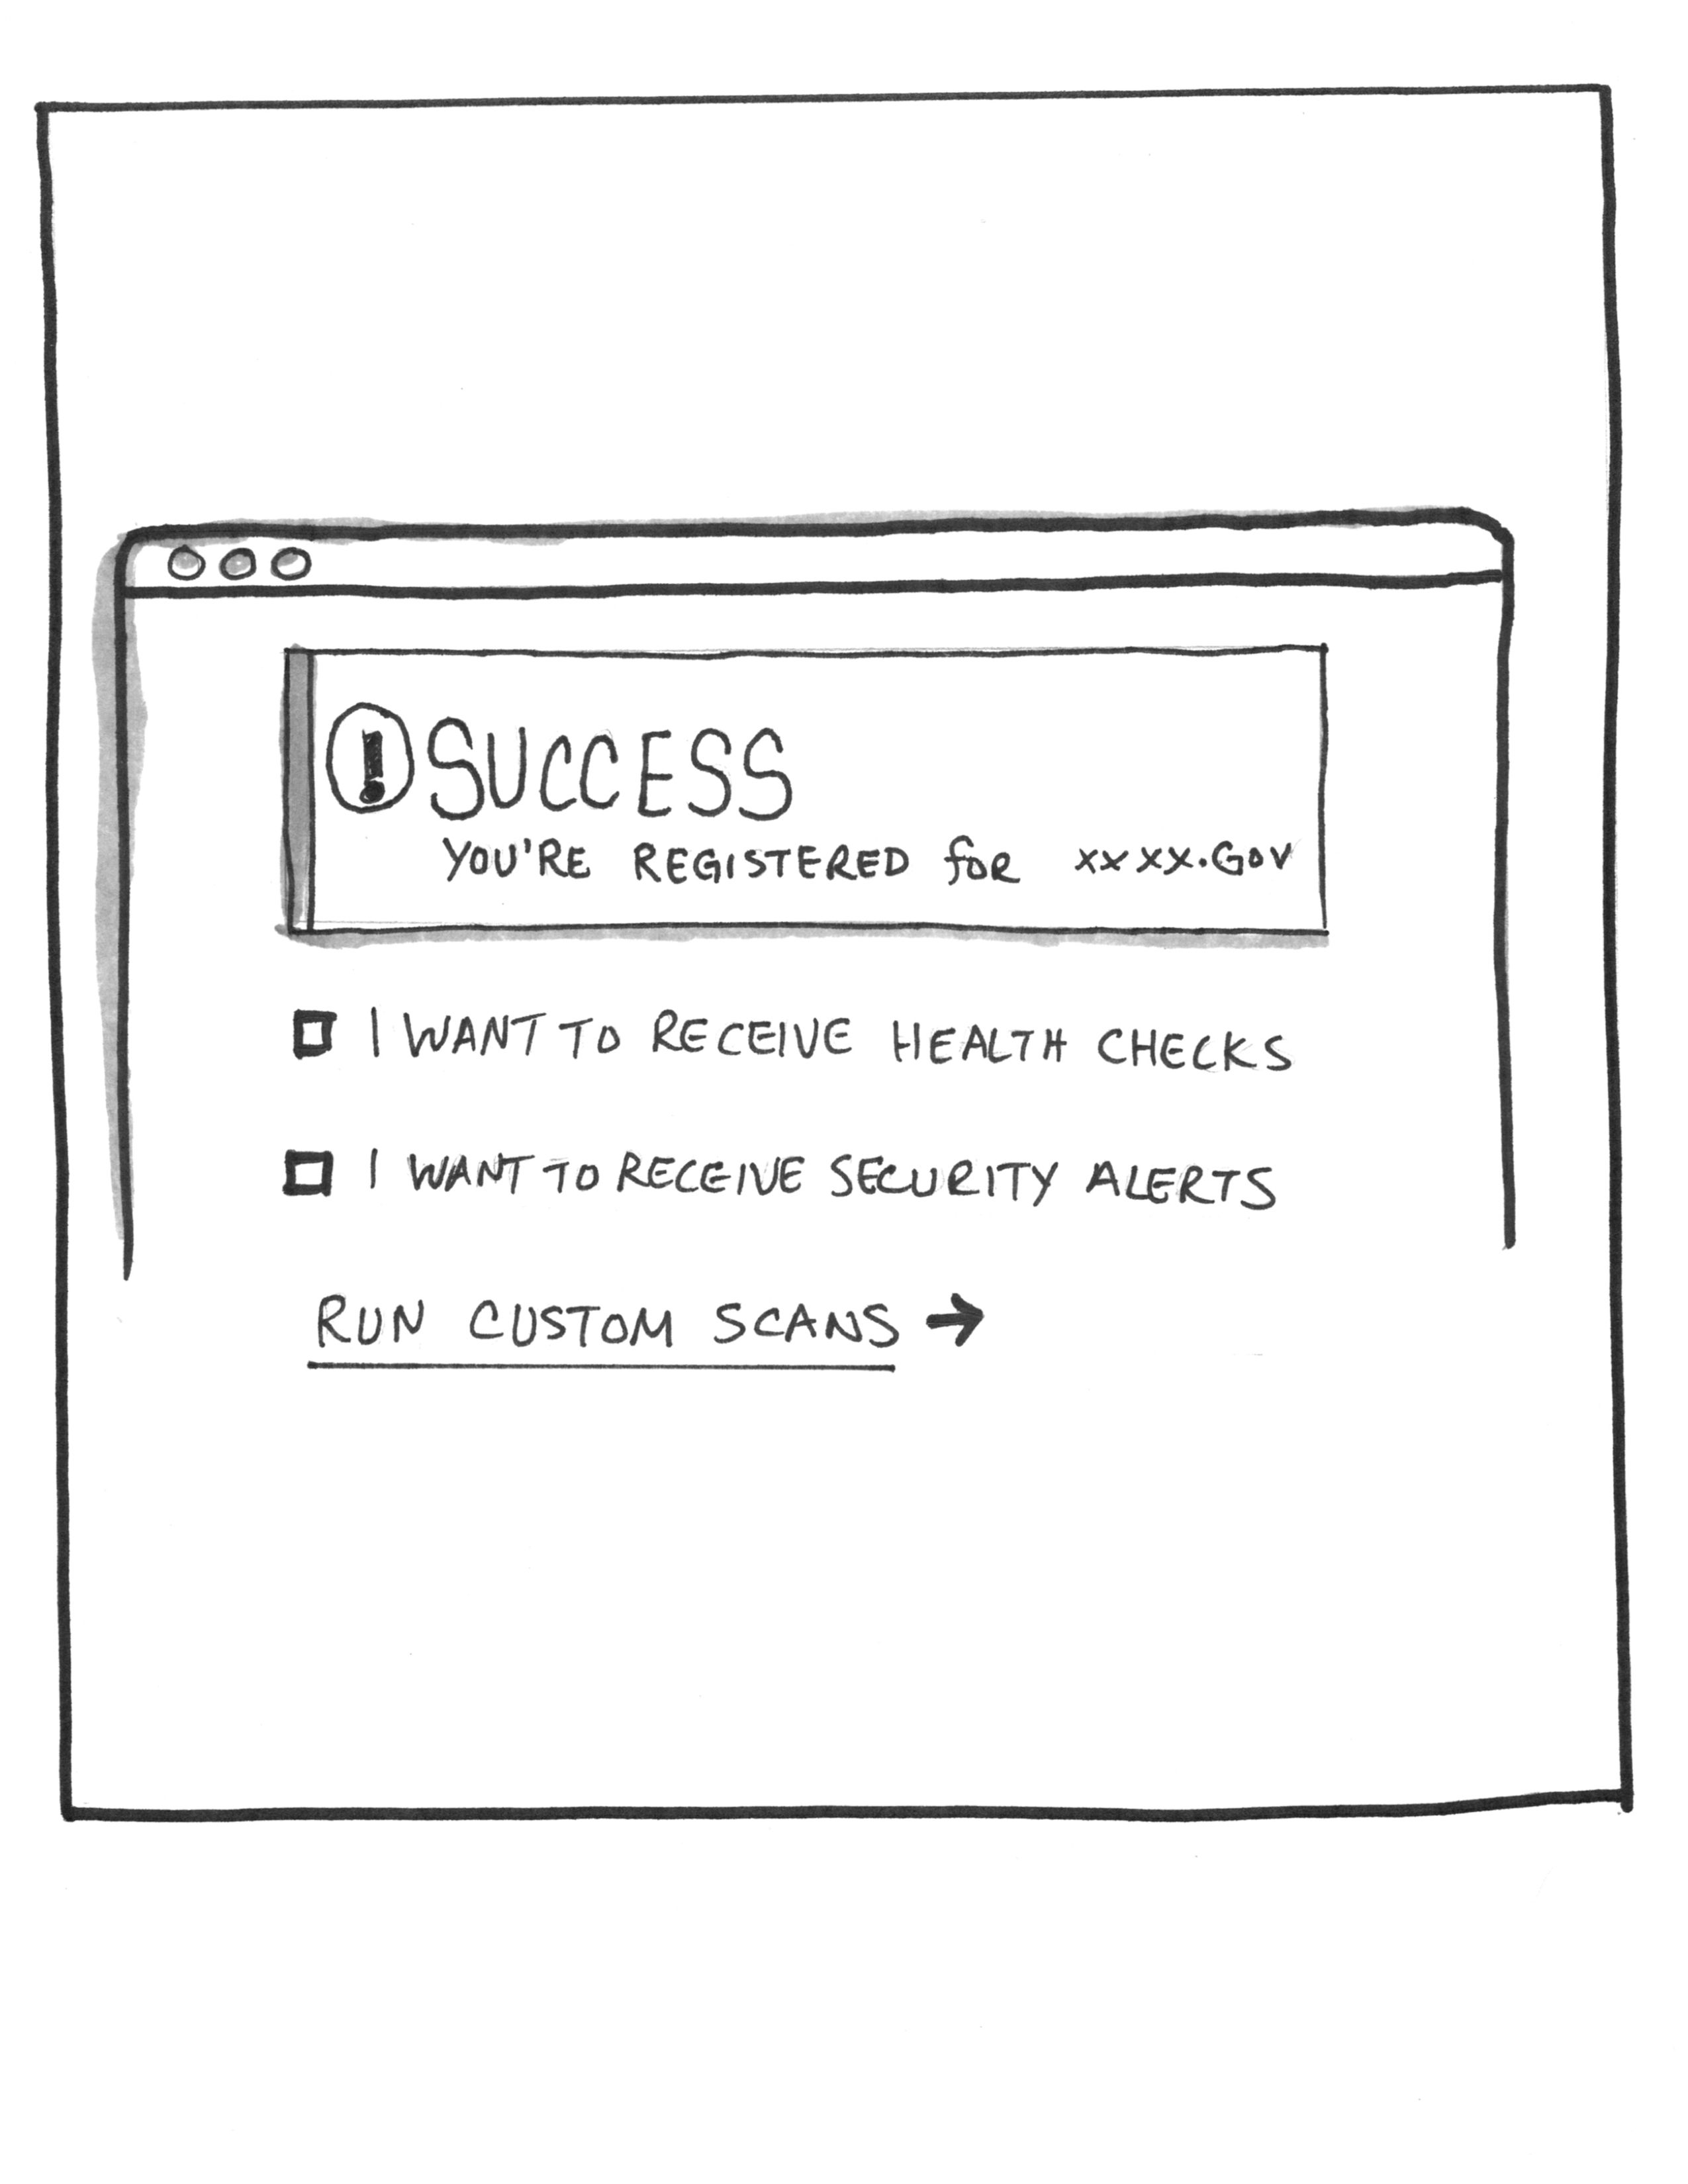 ! SUCCESS
YOU'RE REGISTERED for xxxx.GOV
I WANT TO RECEIVE HEALTH CHECKS
I WANT TO RECEIVE SECURITY ALERTS
RUN CUSTOM SCANS →